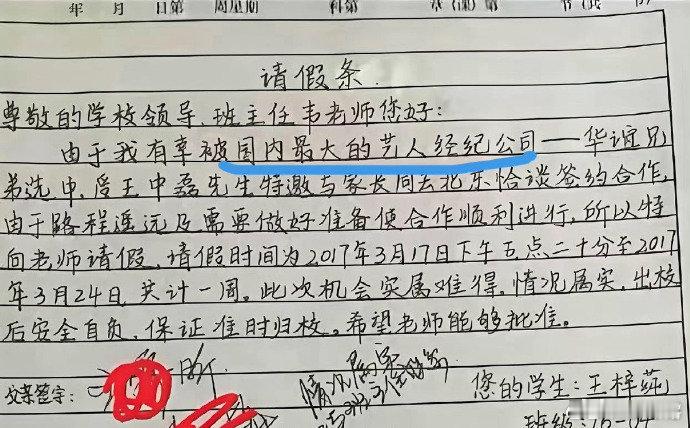 年 月 日第 周星期 科第 章(课)第 节(共
请假条
尊敬的学校领导、班主任韦老师您好:
由于我有幸被国内最大的艺人经纪公司——华谊兄
弟选中,受王中磊先生特邀与家长同去北京恰谈签约合作,
由于路程遥远及需要做好准备使合作顺利进行,所以特
向老师请假,请假时间为2017年3月17日下午五点二十分至2017
年3月24日,共计一周。此次机会实属难得,情况属实,出校
后安全自负,保证准时归校。希望老师能够批准。
父亲签字:
情况属实
您的学生:王梓莼
班级:16-04